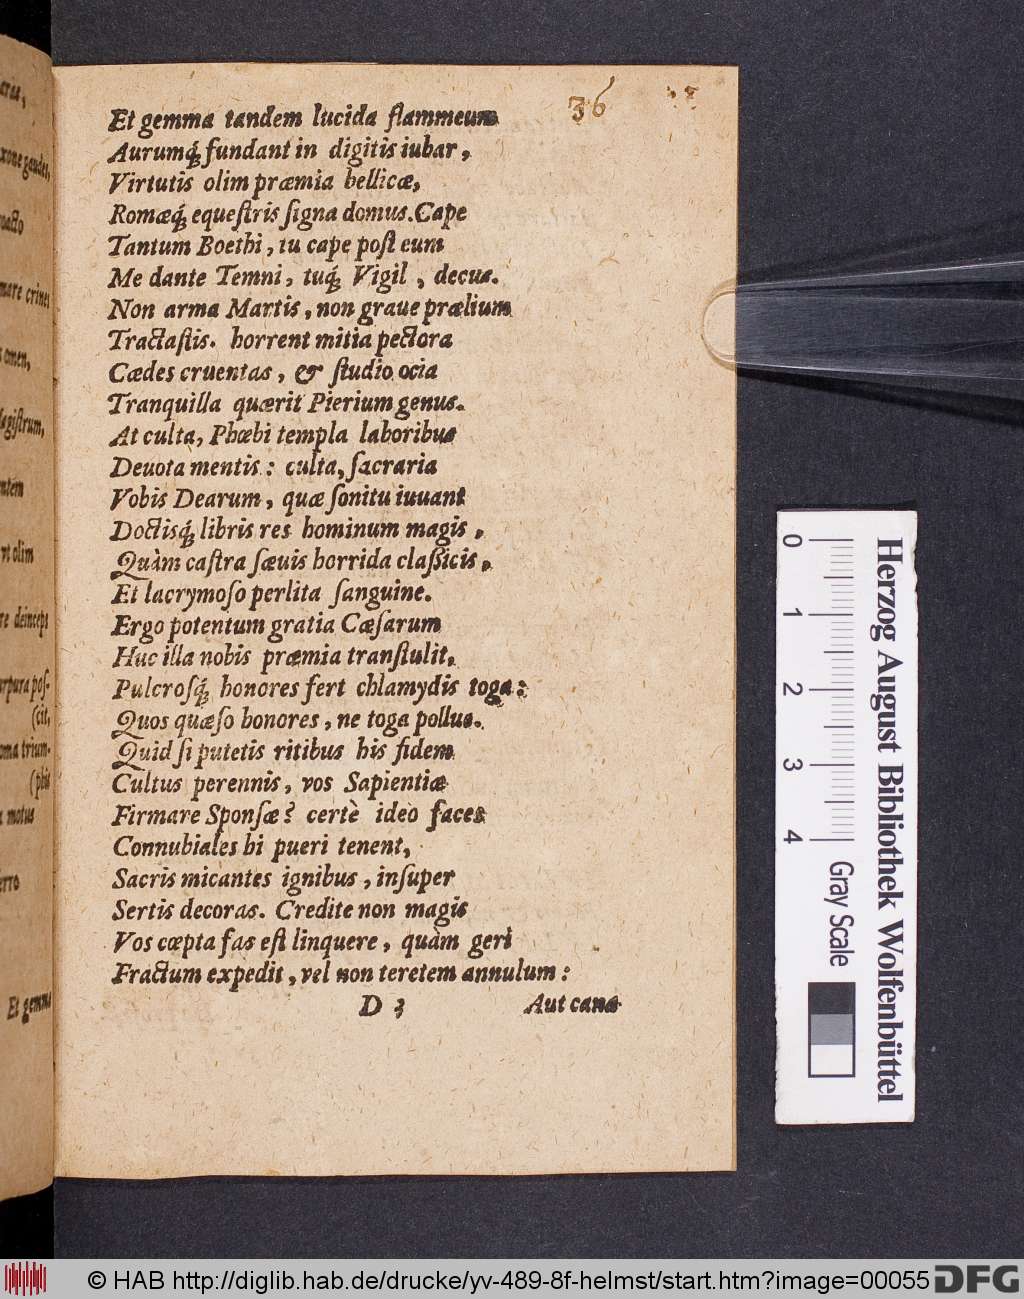 36
Et gemma tandem lucida flammeum
Aurumq́; fundant in digitis iubar,
Virtutis olim præmia bellicæ,
Romæq́; equeſtris ſigna domus. Cape
Tantum Boethi, tu cape poſt eum
Me dante Temni, tuq́; Vigil, decus.
Non arma Martis, non graue prælium
Tractaſtis. horrent mitia pectora
Cædes cruentas, & ſtudio ocia
Tranquilla quærit Pierium genus.
At culta, Phœbi templa laboribus
Deuota mentis: culta, ſacraria
Vobis Dearum, quæ ſonitu iuuant
Doctisq́; libris res hominum magis,
Quàm caſtra ſæuis horrida claſſicis,
Et lacrymoſo perlita ſanguine.
Ergo potentum gratia Cæſarum
Huc illa nobis præmia tranſtulit,
Pulcroſq́; honores fert chlamydis toga:
Quos quæſo honores, ne toga polluas.
Quid ſi putetis ritibus his fidem
Cultus perennis, vos Sapientiæ
Firmare Sponſæ? certè ideo faces
Connubiales hi pueri tenent,
Sacris micantes ignibus, inſuper
Sertis decoras. Credite non magis
Vos cœpta fas eſt linquere, quàm geri
Fractum expedit, vel non teretem annulum:
D 3 Aut cana
arpura poſ-
(cit,
oma trium-
(phis
motus
Et gemma
0 1 2 3 4
Gray Scale
Herzog August Bibliothek Wolfenbüttel
© HAB http://diglib.hab.de/drucke/yv-489-8f-helmst/start.htm?image=00055 DFG